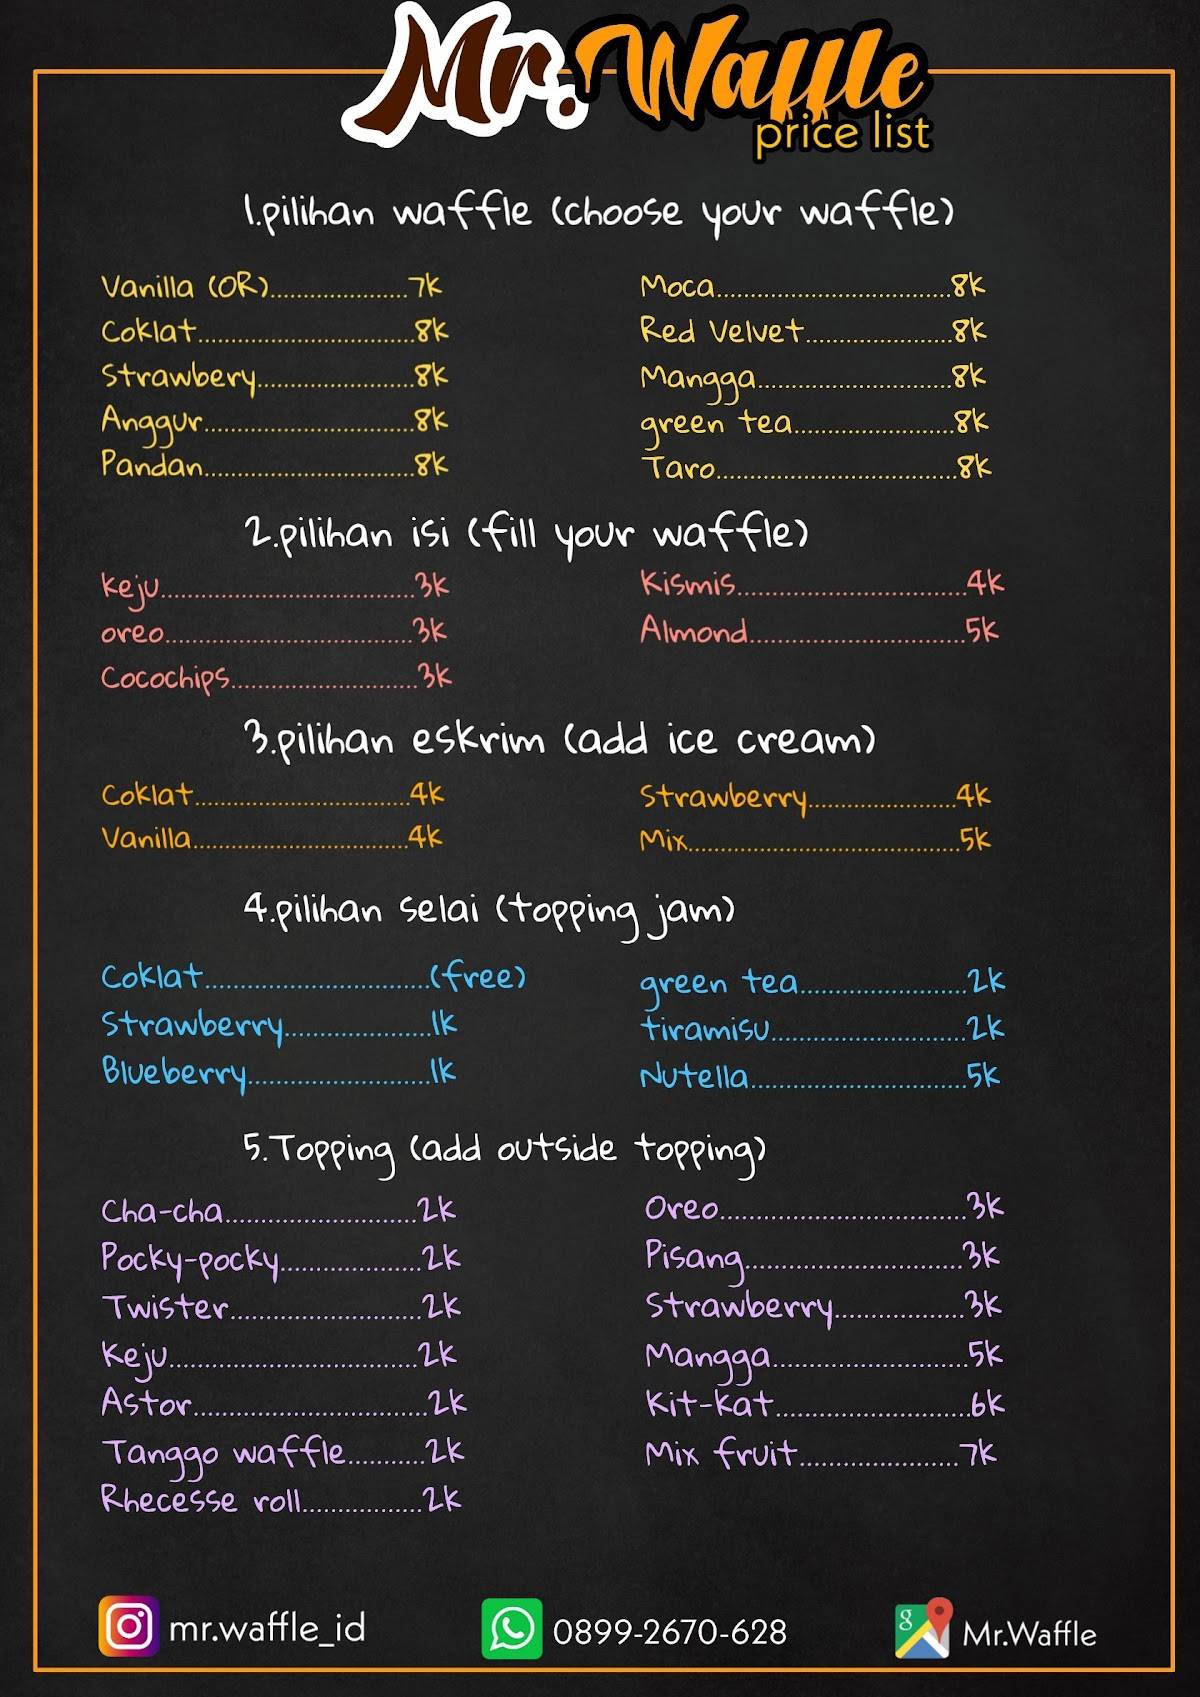 Mr. Waffle
price list
1.pilihan waffle (choose your waffle)
Vanilla (OR)....................7k
Moca..................................8k
Coklat................................8k
Red Velvet.....................8k
Strawbery.......................8k
Mangga............................8k
Anggur...............................8k
green tea.......................8k
Pandan...............................8k
Taro...................................8k
2.pilihan isi (fill your waffle)
keju.....................................3k
Kismis.................................4k
oreo....................................3k
Almond...............................5k
Cocochips...........................3k
3.pilihan eskrim (add ice cream)
Coklat...............................4k
Strawberry.....................4k
Vanilla...............................4k
Mix.......................................5k
4.pilihan selai (topping jam)
Coklat................................(free)
green tea........................2k
Strawberry.....................1k
tiramisu............................2k
Blueberry..........................1k
Nutella...............................5k
5.Topping (add outside topping)
Cha-cha............................2k
Oreo...................................3k
Pocky-pocky....................2k
Pisang...............................3k
Twister...........................2k
Strawberry...................3k
Keju...................................2k
Mangga............................5k
Astor.................................2k
Kit-kat............................6k
Tanggo waffle...........2k
Mix fruit.......................7k
Rhecesse roll.................2k
mr.waffle_id
0899-2670-628
g
Mr.Waffle